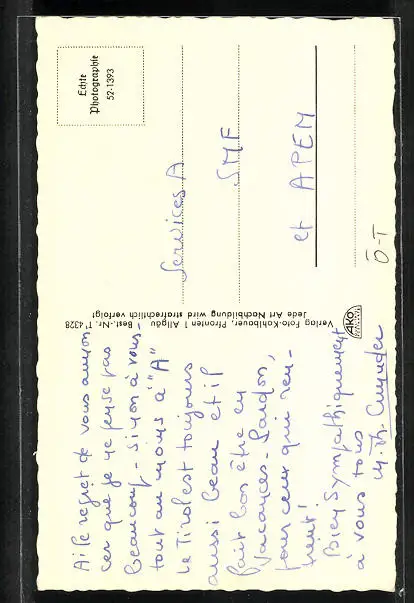 Ai le regret de vous annon-
cer que je ne pense pas
beaucoup - sinon à vous -
tout au moins à "A"
Le Tirol est toujours
aussi beau et il
fait bon être en
vacances - Pardon,
pour ceux qui ren-
trent!
Bien sympathiquement
à vous tous
M. Th.
Verlag Foto-Kohlbauer, Pfronten 1 Allgäu Best.-Nr. T 4328
Jede Art Nachbildung wird strafrechtlich verfolgt
AKO
Echte
Photographie
52-1393
Services A
SMF
et APEM
Ö-T